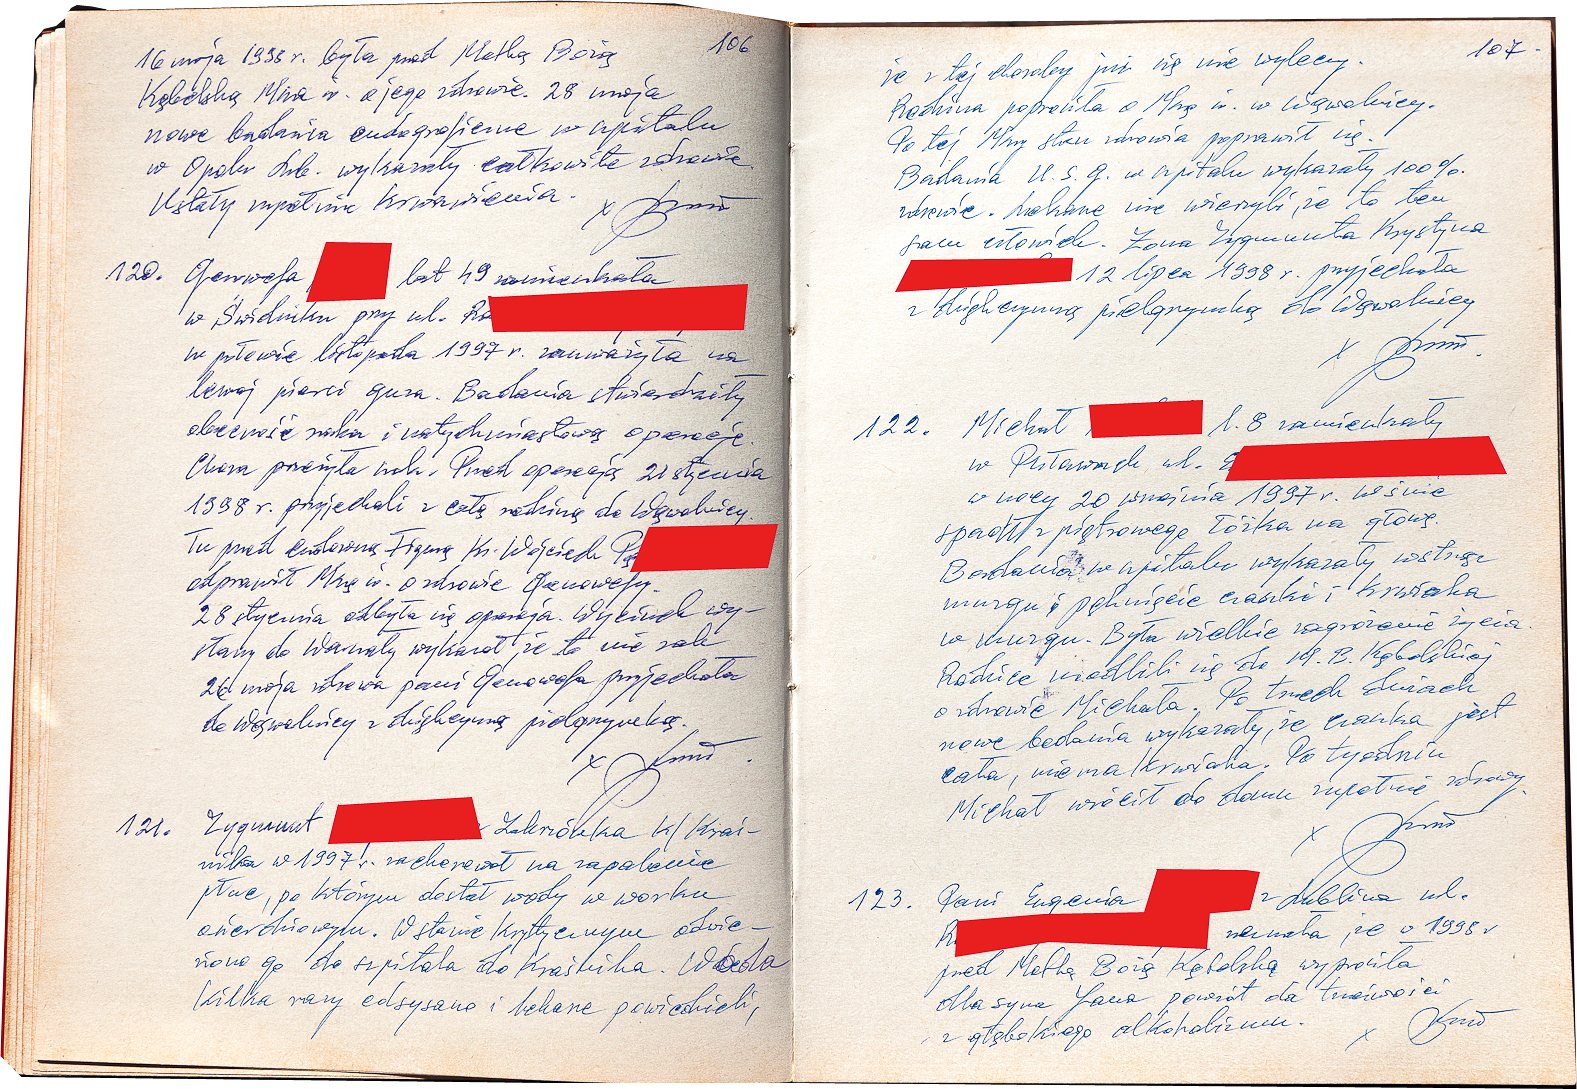 106
16 maja 1998 r. była przed Matką Bożą
Kębelską Msza św. o jego zdrowie. 28 maja
nowe badania endografijne w szpitalu
w Opolu Lub. wykazały całkowite zdrowie
Ustały zupełnie krwawienia.
x
120. Genowefa lat 49 zamieszkała
w Świdniku przy ul.
w połowie listopada 1997 r. zauważyła na
lewej piersi guza. Badania stwierdziły
obecność raka i natychmiastową operację.
Chora przeżyła szok. Przed operacją 21 stycznia
1998 r. przyjechali z całą rodziną do Wąwolnicy.
Tu przed cudowną Figurą Ks. Wojciech
odprawił Mszę św. o zdrowie Genowefy.
28 stycznia odbyła się operacja. Wycinek wy-
słany do Warszawy wykazał, że to nie rak
26 maja zdrowa pani Genowefa przyjechała
do Wąwolnicy z dziękczynną pielgrzymką.
x
121. Zygmunt Zakrzówka k/Kraś-
nika w 1997 r. zachorował na zapalenie
płuc, po którym dostał wody w worku
osierdziowym. W stanie krytycznym odwie-
ziono go do szpitala do Kraśnika. Woda
kilka razy odsysano i lekarze powiedzieli,
107
że z tej choroby już się nie wyleczy.
Rodzina poprosiła o Mszę św. w Wąwolnicy.
Po tej Mszy stan zdrowia poprawił się.
Badania U.S.G. w szpitalu wykazały 100%
zdrowie. Lekarze nie wierzyli, że to ten
sam człowiek. Żona Zygmunta Krystyna
12 lipca 1998 r. przyjechała
z dziękczynną pielgrzymką do Wąwolnicy
x
122. Michał l. 8 zamieszkały
w Puławach ul.
w nocy 20 września 1997 r. we śnie
spadł z piętrowego łóżka na głowę.
Badania w szpitalu wykazały wstrząs
mózgu i pęknięcie czaszki i krwiaka
w mózgu. Było wielkie zagrożenie życia.
Rodzice modlili się do M. B. Kębelskiej
o zdrowie Michała. Po trzech dniach
nowe badania wykazały, że czaszka jest
cała, nie ma krwiaka. Po tygodniu
Michał wrócił do domu zupełnie zdrowy.
x
123. Pani Eugenia z Lublina ul.
zeznała, że w 1998 r
przed Matką Bożą Kębelską wyprosiła
dla syna Jana powrót do trzeźwości
z głębokiego alkoholizmu.
x